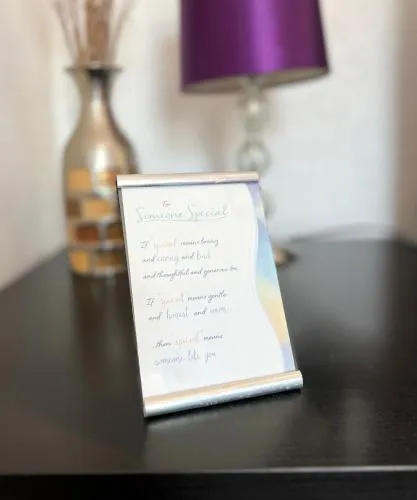 To
Someone Special
If "special" means loving
and caring and kind
and thoughtful and generous too,
If "special" means gentle
and honest and warm,
then "special" means
someone like you